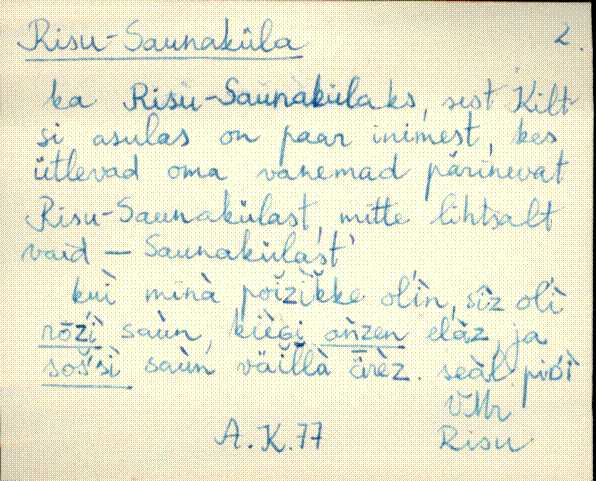 Risu-Saunaküla 2.
ka Risu-Saunakülaks, sest Kilt-
si asulas on paar inimest, kes
ütlevad oma vanemad pärinevat
Risu-Saunakülast, mitte lihtsalt
vaid — Saunakülast
kuì minà poĭzìkke olìn, sīz olì
rōzì saùn, kiègi oǹzen elàz, ja
soššì saùn väĭllà ärèz. seàl pidì
VMr
A.K.77 Risu